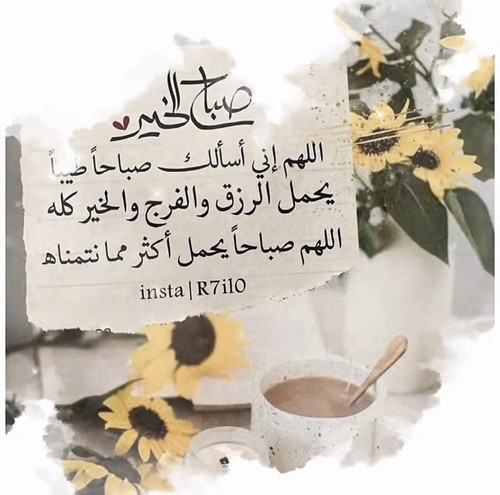 صباح الخير
اللهم إني أسألك صباحاً طيباً
يحمل الرزق والفرج والخير كله
اللهم صباحاً يحمل أكثر مما نتمناه
insta|R7il0